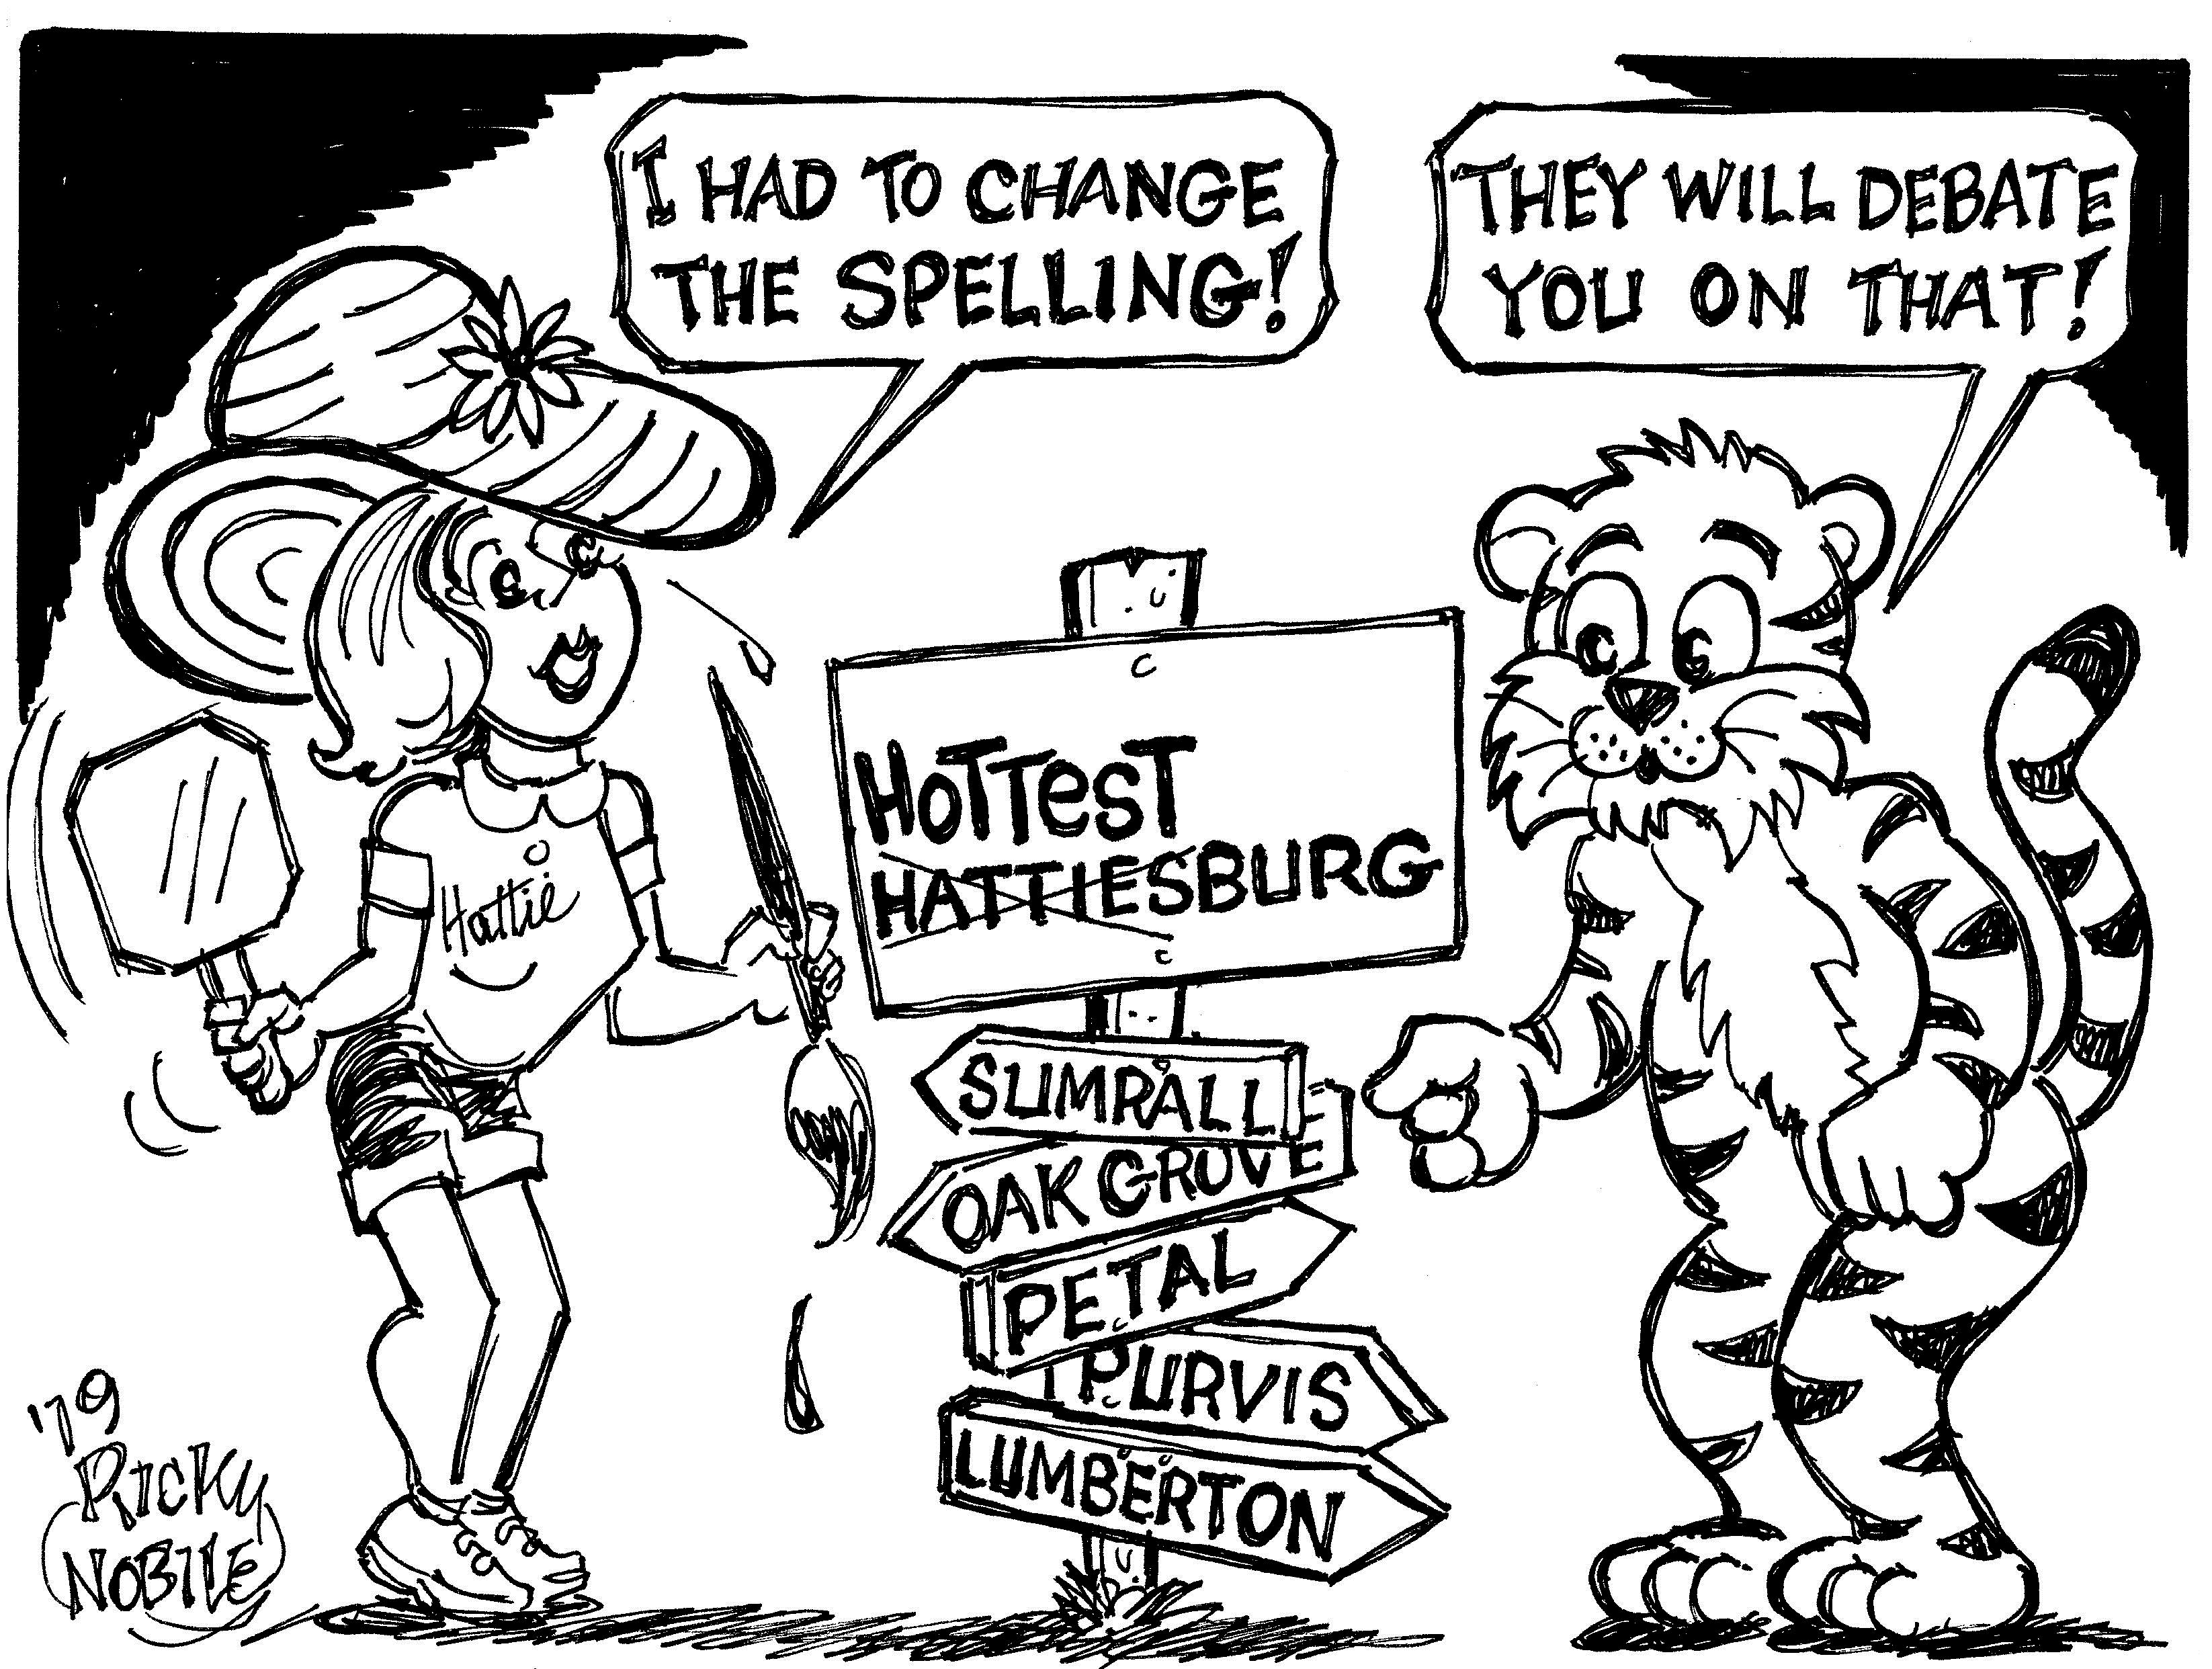 I HAD TO CHANGE
THE SPELLING!
THEY WILL DEBATE
YOU ON THAT!
Hattie
HOTTeST
HATTIESBURG
SUMRALL
OAK GROVE
PETAL
PURVIS
LUMBERTON
'19
RICKY
NOBILE